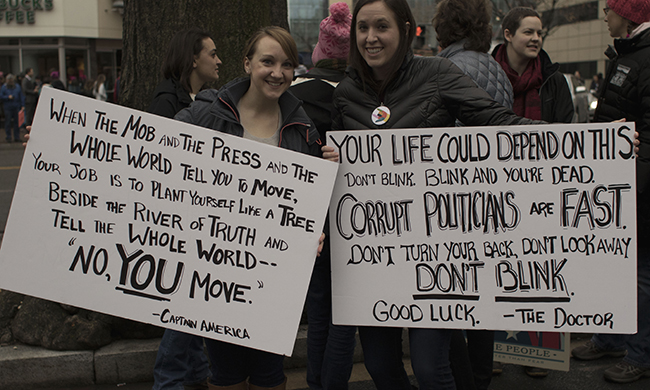 FFEE
WHEN THE MOB AND THE PRESS AND THE
WHOLE WORLD TELL YOU TO MOVE,
YOUR JOB IS TO PLANT YOURSELF LIKE A TREE
BESIDE THE RIVER OF TRUTH AND
TELL THE WHOLE WORLD--
"NO, YOU MOVE."
-CAPTAIN AMERICA
YOUR LIFE COULD DEPEND ON THIS.
DON'T BLINK. BLINK AND YOU'RE DEAD.
CORRUPT POLITICIANS ARE FAST.
DON'T TURN YOUR BACK, DON'T LOOK AWAY
DON'T BLINK.
GOOD LUCK. -THE DOCTOR
E PEOPLE